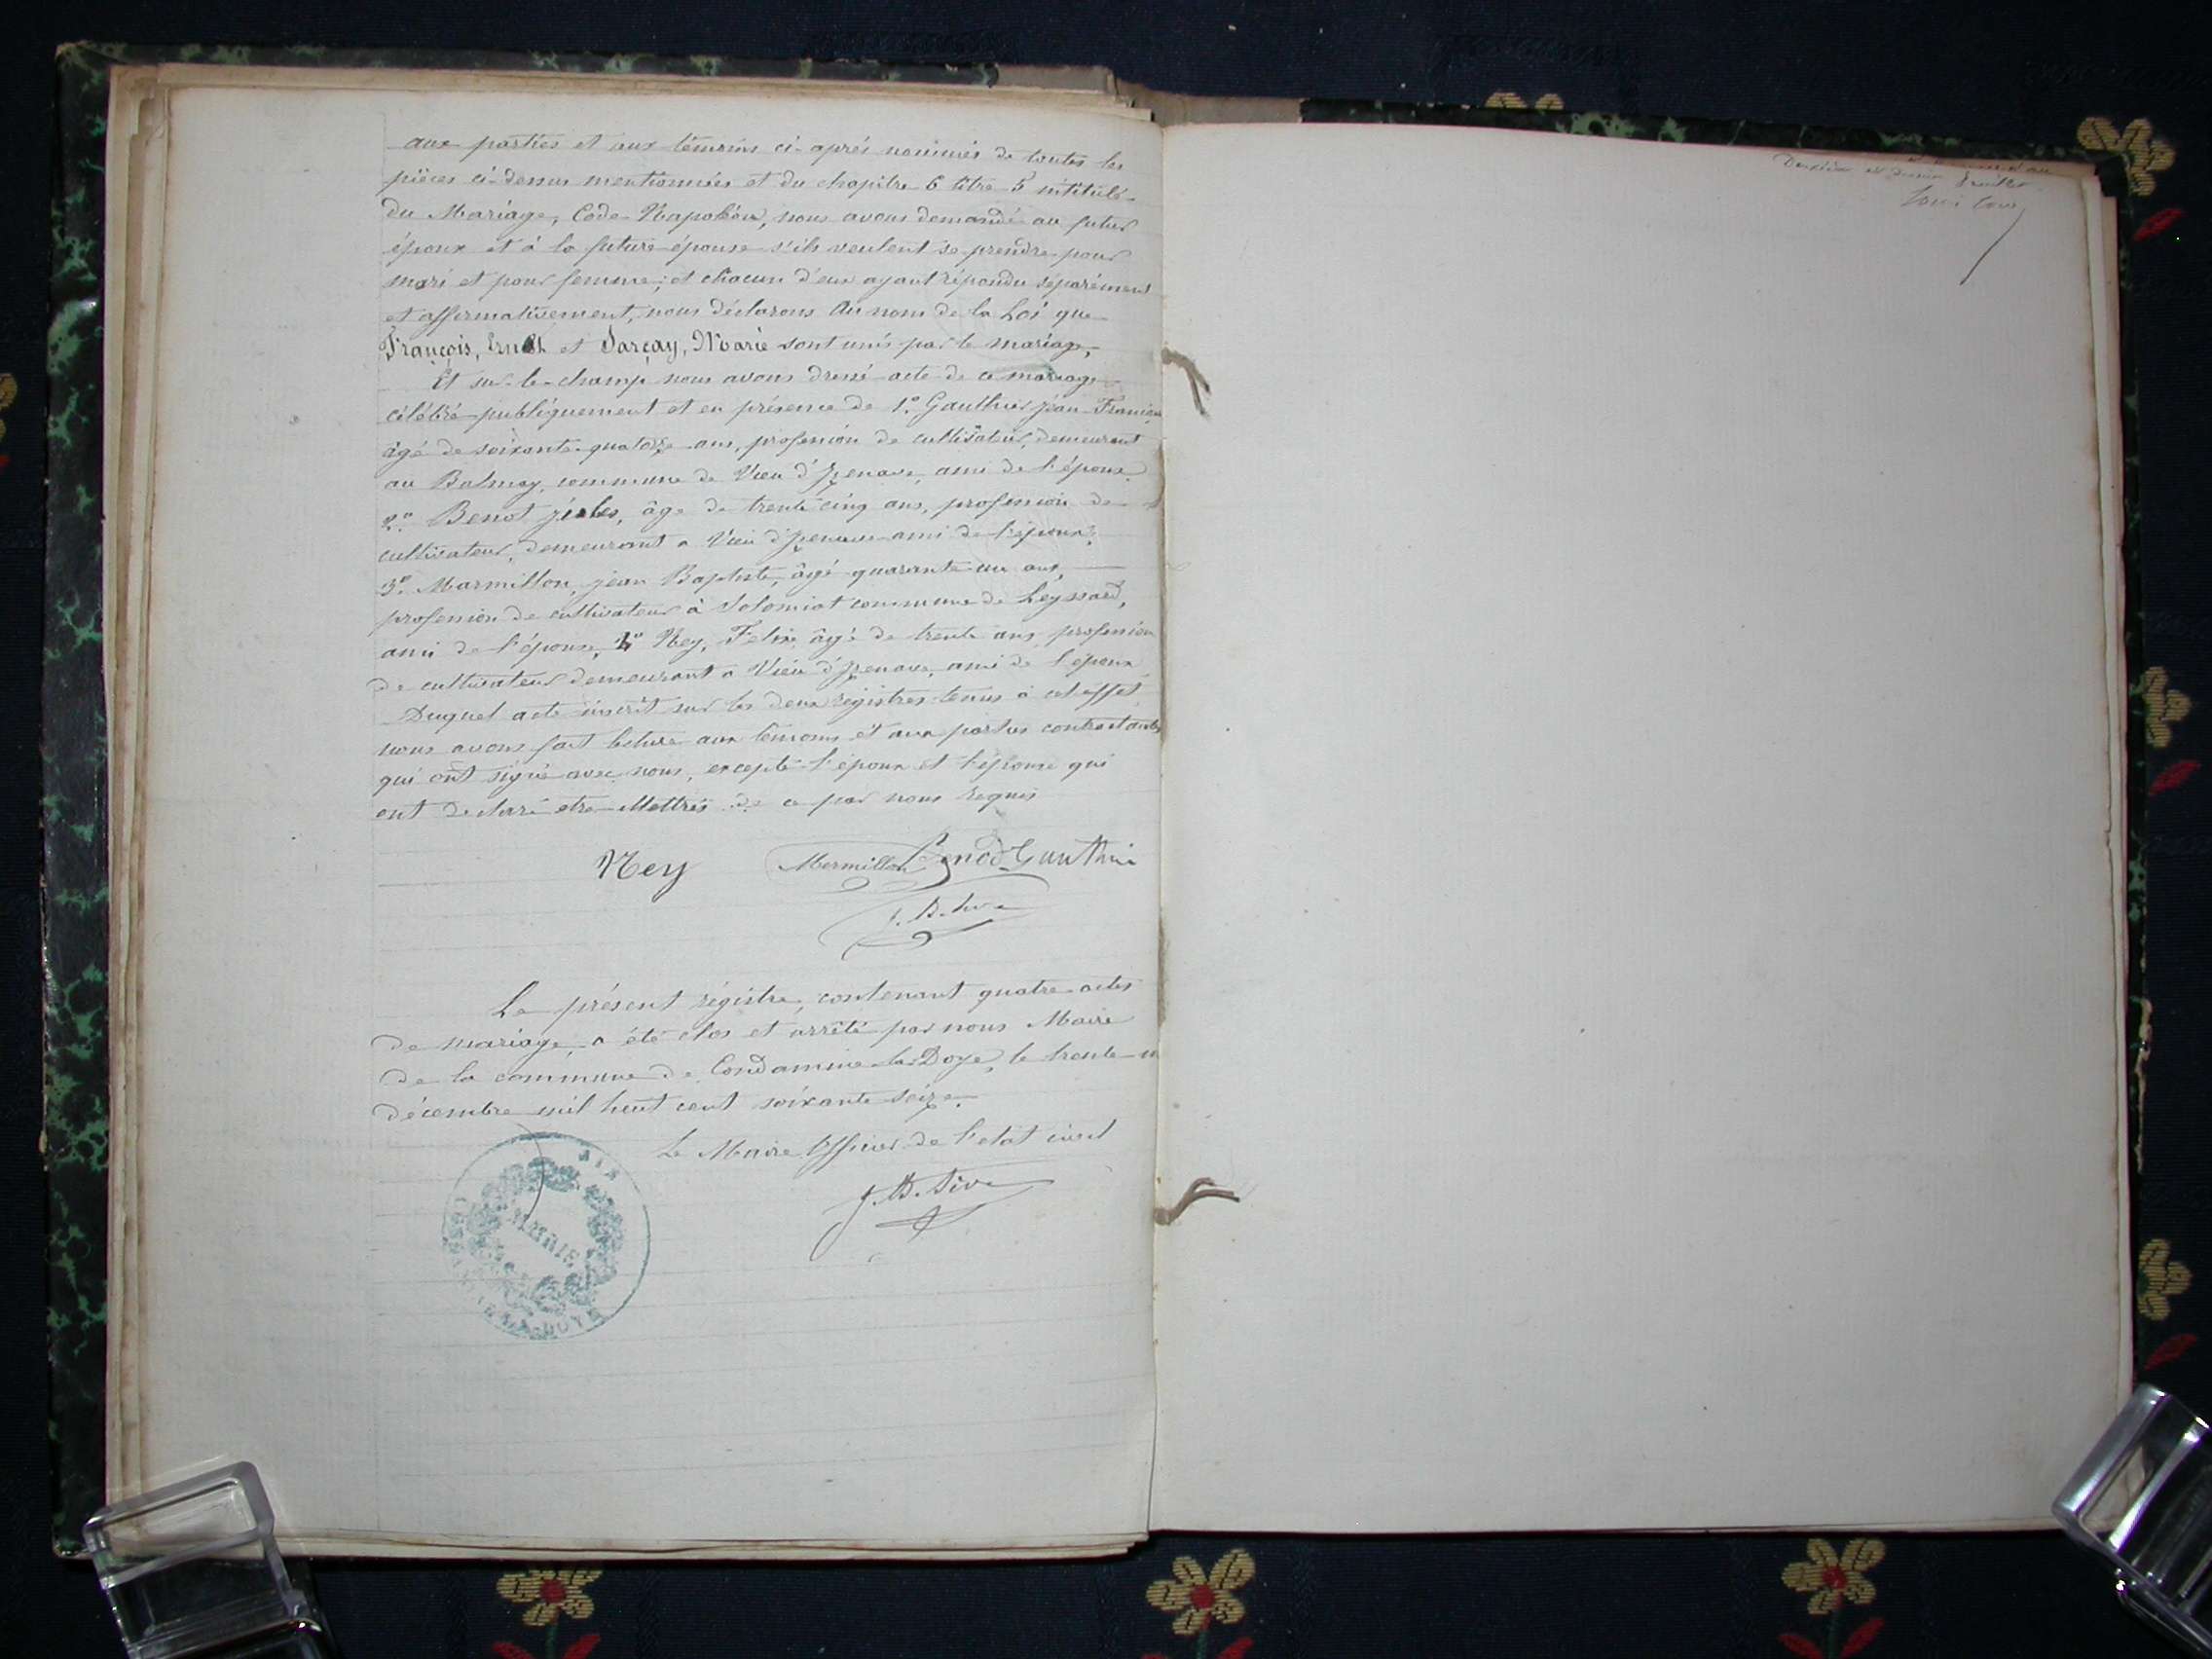 aux parties et aux témoins ci-après nommés de toutes les
pièces ci-dessus mentionnées et du chapitre 6 titre 5 intitulé
du Mariage, Code Napoléon, nous avons demandé au futur
époux et à la future épouse s'ils veulent se prendre pour
mari et pour femme; et chacun d'eux ayant répondu séparément
et affirmativement, nous déclarons Au nom de la Loi que
François, Ernest et Sarçay, Marie sont unis par le mariage,
Et sur-le-champ nous avons dressé acte de ce mariage
célébré publiquement et en présence de 1º Gauthier jean François
âgé de soixante-quatorze ans, profession de cultivateur, demeurant
au Balmay, commune de Vieu d'Izenave, ami de l'époux
2º Benot jules, âge de trente cinq ans, profession de
cultivateur, demeurant a Vieu d'Izenave ami de l'époux,
3º Marmillon, jean Baptiste, âgé quarante un ans,
profession de cultivateur à Solomiat commune de Leyssard,
ami de l'épouse, 4º Rey, Felix âgé de trente ans profession
de cultivateur demeurant a Vieu d'Izenave, ami de l'époux
Duquel acte inscrit sur les deux registres tenus à cet effet
nous avons fait lecture aux témoins et aux parties contractantes
qui ont signé avec nous, excepté l'époux et l'épouse qui
ont declaré etre illettrés de ce par nous requis
Rey Mermillon Benod Gauthier
J. B.
Le présent régistre, contenant quatre actes
de mariage, a été clos et arrêté par nous Maire
de la commune de Condamine-la-Doye, le trente-un
décembre mil huit cent soixante seize.
Le Maire Officier de l'etat civil
J. B.
AIN
MAIRIE
LA DOYE
Deuxième et dernier feuillet